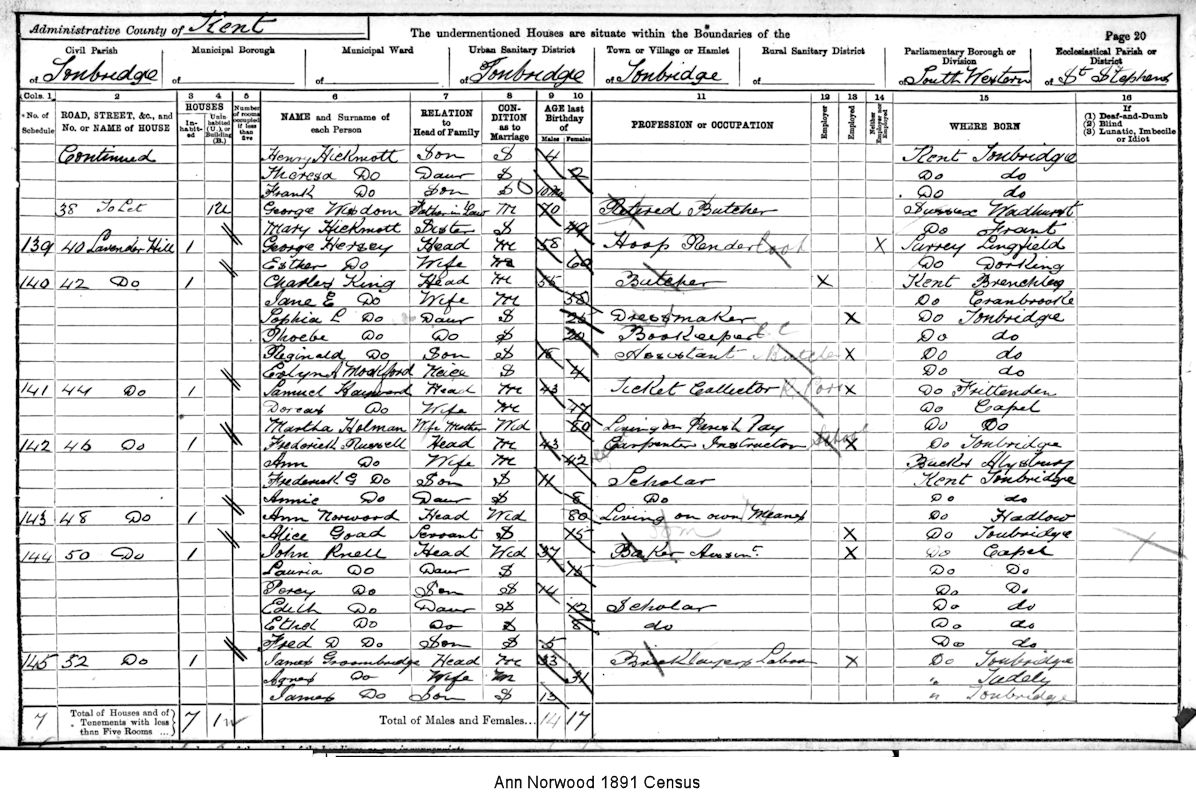 Administrative County of Kent
The undermentioned Houses are situate within the Boundaries of the
Page 20
Civil Parish of Tonbridge
Municipal Borough of
Municipal Ward of
Urban Sanitary District of Tonbridge
Town or Village or Hamlet of Tonbridge
Rural Sanitary District of
Parliamentary Borough or Division of South Western
Ecclesiastical Parish or District of St Stephens
Cols. 1 2 3 4 5 6 7 8 9 10 11 12 13 14 15 16
No. of Schedule
ROAD, STREET, &c., and No. or NAME of HOUSE
HOUSES Inhabited Uninhabited (U.), or Building (B.)
Number of rooms occupied if less than five
NAME and Surname of each Person
RELATION to Head of Family
CONDITION as to Marriage
AGE last Birthday of Males Females
PROFESSION or OCCUPATION
Employer
Employed
Neither Employer nor Employed
WHERE BORN
If (1) Deaf-and-Dumb (2) Blind (3) Lunatic, Imbecile or Idiot
Continued Henry Hickmott Son S 4 Kent Tonbridge
Theresa Do Daur S 2 Do do
Frank Do Son S 10 Do do
38 To Let 1U George Wisdom Father in Law M 70 Retired Butcher Sussex Wadhurst
Mary Hickmott Sister S Do Frant
139 40 Lavender Hill 1 George Hersey Head M 58 Hoop X Surrey Lingfield
Esther Do Wife M 60 Do Dorking
140 42 Do 1 Charles King Head M 55 Butcher X Kent Brenchley
Jane E Do Wife M 58 Do Cranbrooke
Sophia L Do Daur S 25 Dressmaker X Do Tonbridge
Phoebe Do Do S 20 Bookeeper Do do
Reginald Do Son S 18 Assistant Butcher X Do do
Evelyn Mockford Neice S 4 Do do
141 44 Do 1 Samuel Hayward Head M 43 Ticket Collector X Do Frittenden
Dorcas Do Wife M 47 Do Capel
Martha Holman Wife Mother Wid 80 Living on Parish Pay Do Do
142 46 Do 1 Frederick Russell Head M 43 Carpenter Instructor School X Do Tonbridge
Ann Do Wife M 42 Bucks Alysbury
Frederick G Do Son S 11 Scholar Kent Tonbridge
Annie Do Daur S 8 Do Do do
143 48 Do 1 Ann Norwood Head Wid 80 Living on own Means Do Hadlow
Alice Goad Servant S 15 Dom X Do Tonbridge
144 50 Do 1 John Knell Head Wid 37 Baker X Do Capel
Lauria Do Daur S Do Do
Percy Do Son S 14 Do Do
Edith Do Daur S 12 Scholar Do do
Ethel Do Do S 8 do Do do
Fred D Do Son S 5 Do do
145 52 Do 1 James Groombridge Head M 33 Bricklayers Labou X Do Tonbridge
Agnes Do Wife M 31 " Tudely
James Do Son S 13 " Tonbridge
7 Total of Houses and of Tenements with less than Five Rooms ... 7 1 Total of Males and Females... 14 17
Ann Norwood 1891 Census